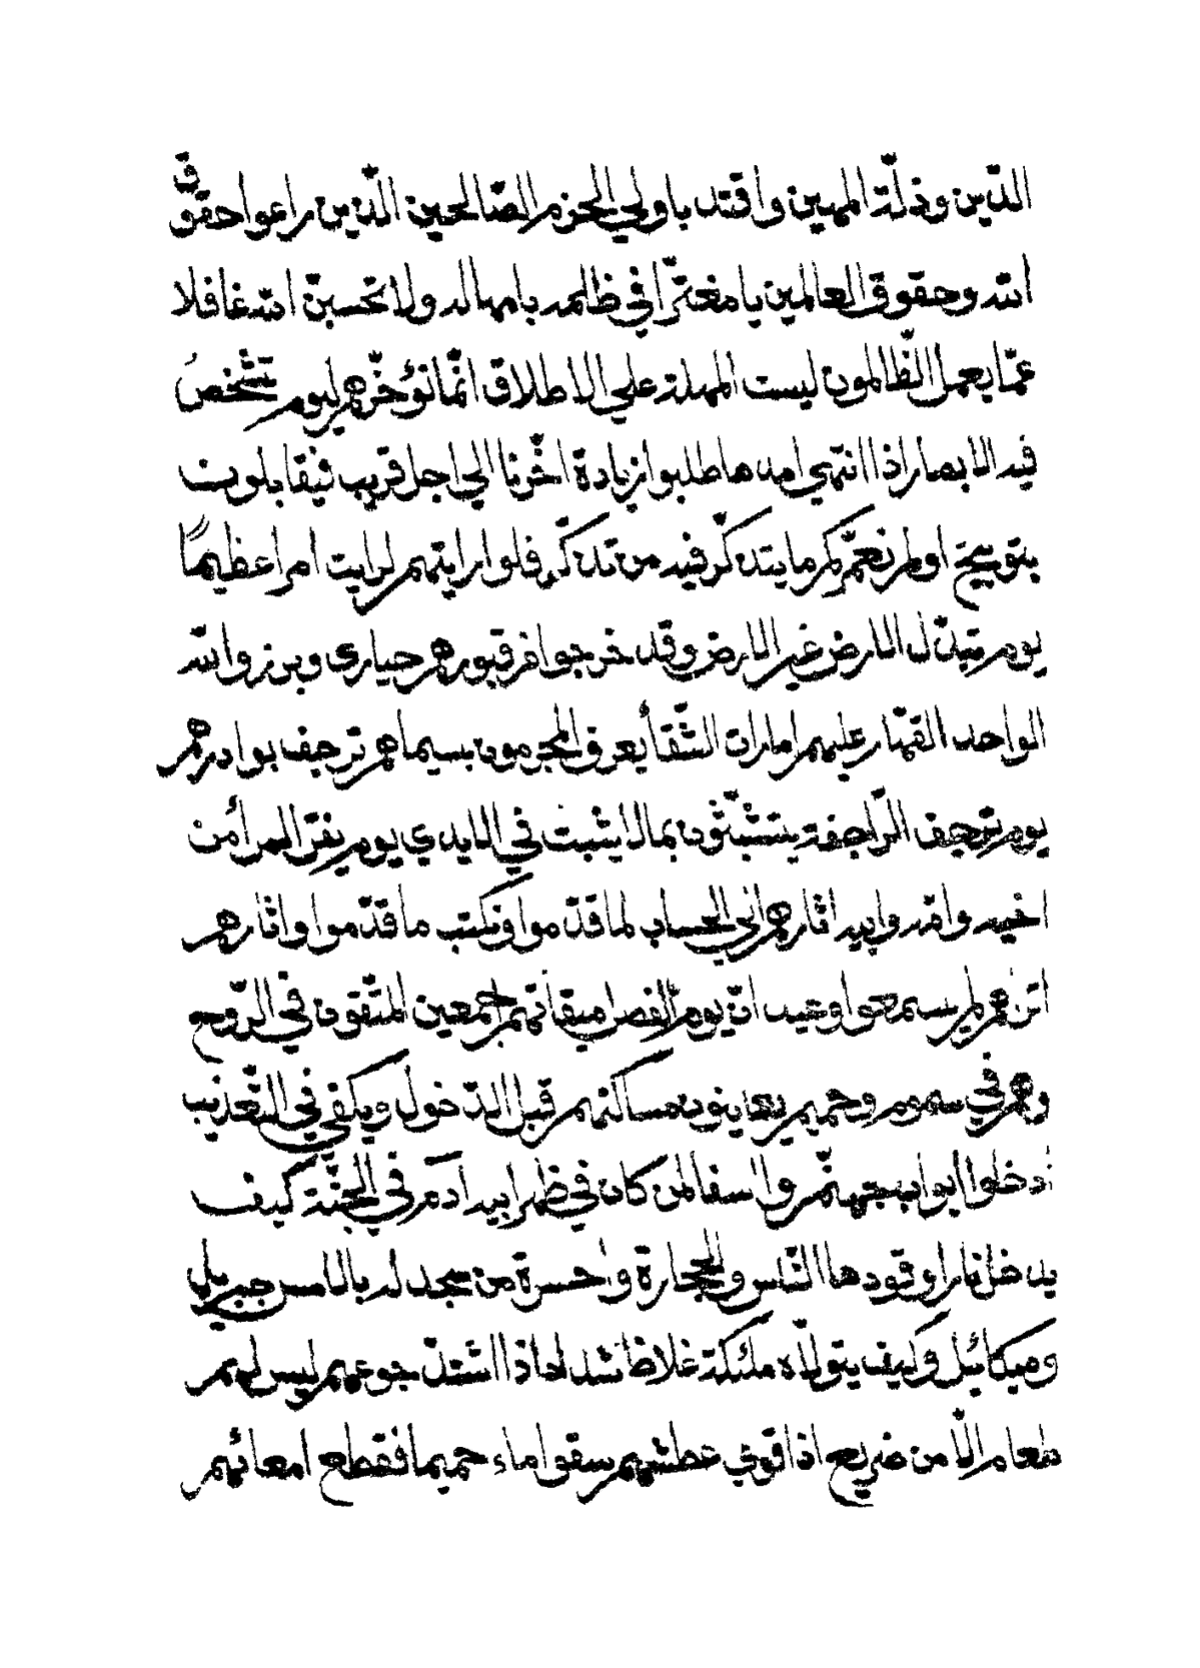 الدّين وذلّة المهين واقتد باولي الحزم الصّالحين الّذين راعوا حقوق
الله وحقوق العالمين يا مغترّا في ظلمه بامهاله ولا تحسبنّ الله غافلا
عمّا يعمل الظّالمون ليست المهلة علي الاطلاق انّما نؤخّرهم ليوم تشخص
فيه الابصار اذا انتهي امدها طلبوا زيادة اخّرنا الي اجل قريب فيقابلون
بتوبيخ اولم نعمّركم ما يتذكّر فيه من تذكّر فلو رايتهم لرايت امرا عظيمًا
يوم تبدّل الارض غير الارض وقد خرجوا من قبورهم حياري وبرزوا لله
الواحد القهّار عليهم امارات الشّقأ يعرف المجرمون بسيماهم ترجف بوادرهم
يوم ترجف الرّاجفة يتشبّثون بما لا يثبت في الايدي يوم يفرّ المرأ من
اخيه وامّه وابيه اثارهم في الحساب لما قدّموا ونكتب ما قدّموا واثارهم
اتراهم لم يسمعوا وعيد انّ يوم الفصل ميقاتهم اجمعين المتّقون في الرّوح
وهم في سموم وحميم يعاينون مساكنهم قبل الدّخول ويكفي في التّعذيب
ادخلوا ابواب جهنّم واسفا لمن كان في ظهر ابيه آدم في الجنّة كيف
يدخل نارا وقودها النّاس والحجارة واحسرة من سجد له بالامس جبريل
وميكائيل وكيف يتولّاه ملئكة غلاظ شداد اذا اشتدّ جوعهم ليس لهم
طعام الّا من ضريع اذا قوي عطشهم سقوا ماء حميما فقطع امعائهم